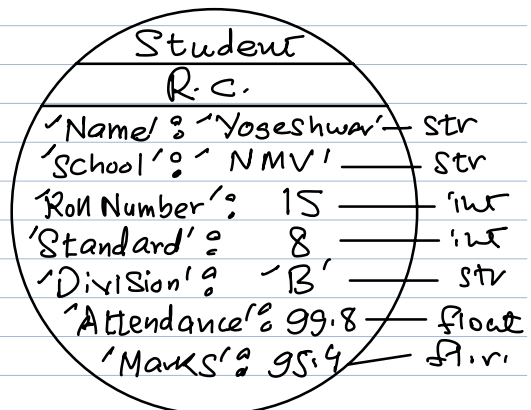 Student
R.C.
'Name' : 'Yogeshwar' — str
'School' : 'NMV' — str
'Roll Number' : 15 — int
'Standard' : 8 — int
'Division' : 'B' — str
'Attendance' : 99.8 — float
'Marks' : 95.4